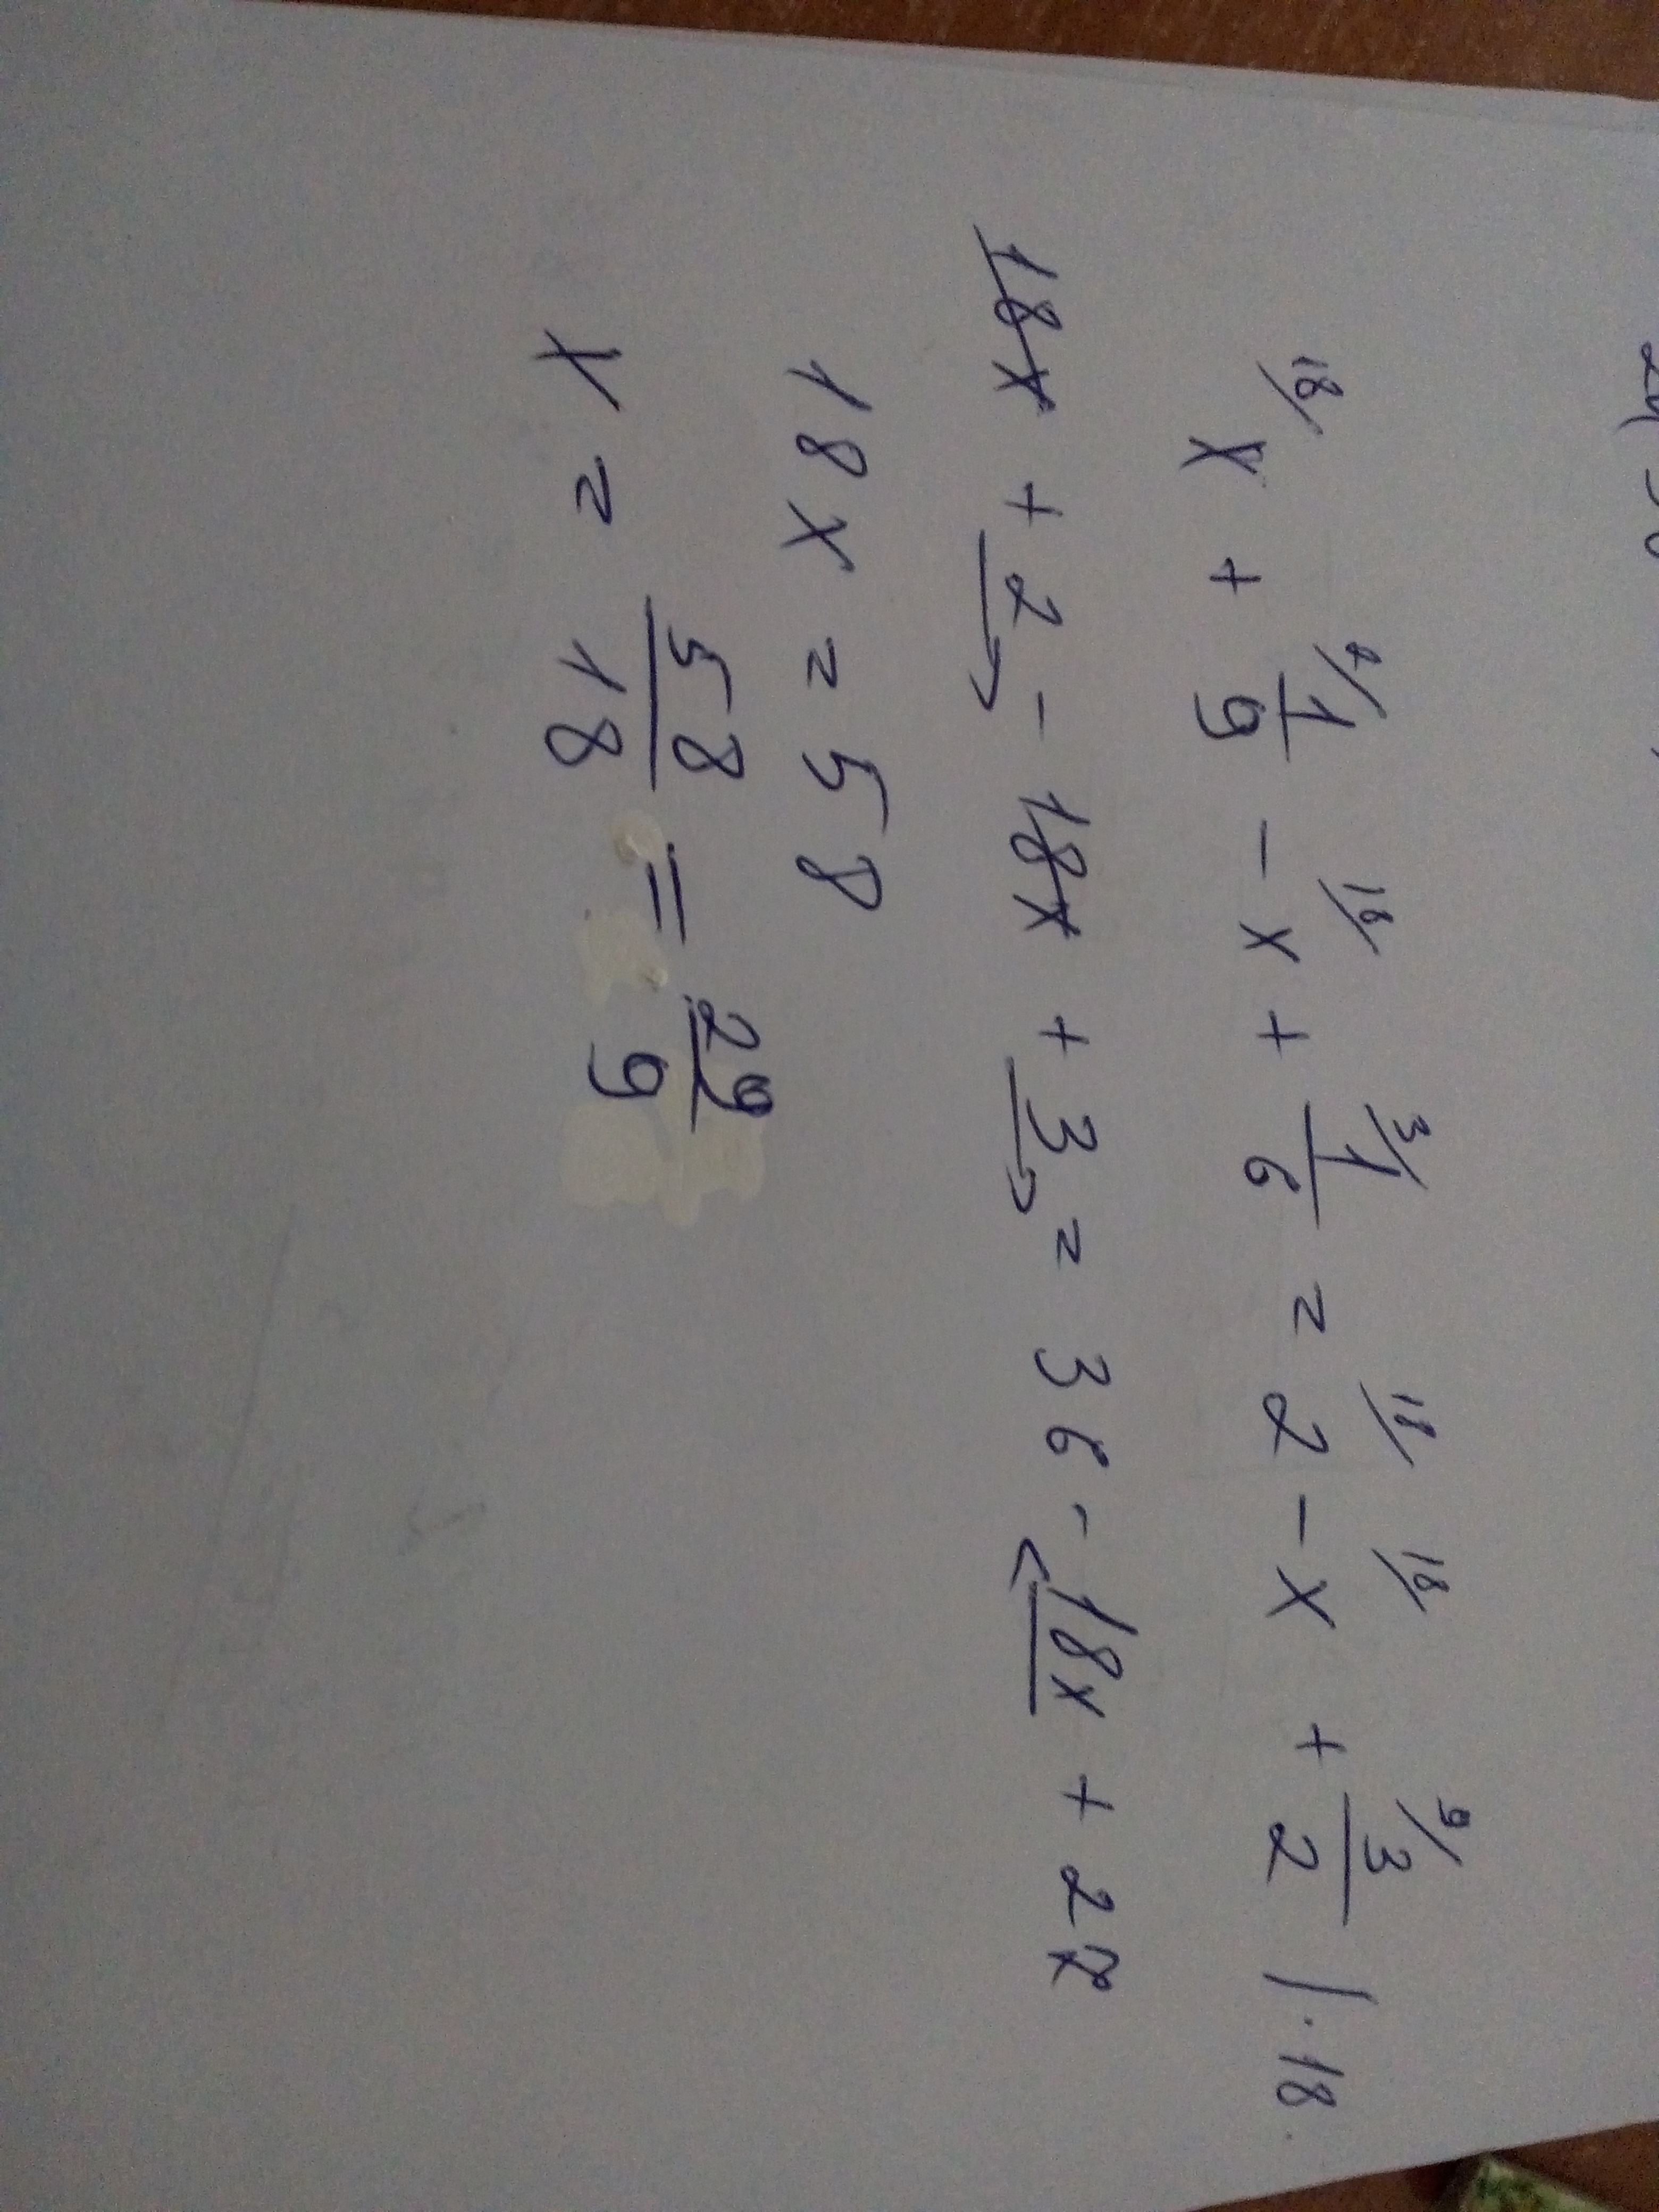 18/ x + 2/ 1/9 - 18/ x + 3/ 1/6 = 18/ 2 - 18/ x + 9/ 3/2 | · 18
18x + 2 - 18x + 3 = 36 - 18x + 27
18x = 58
x = 58/18 = 29/9